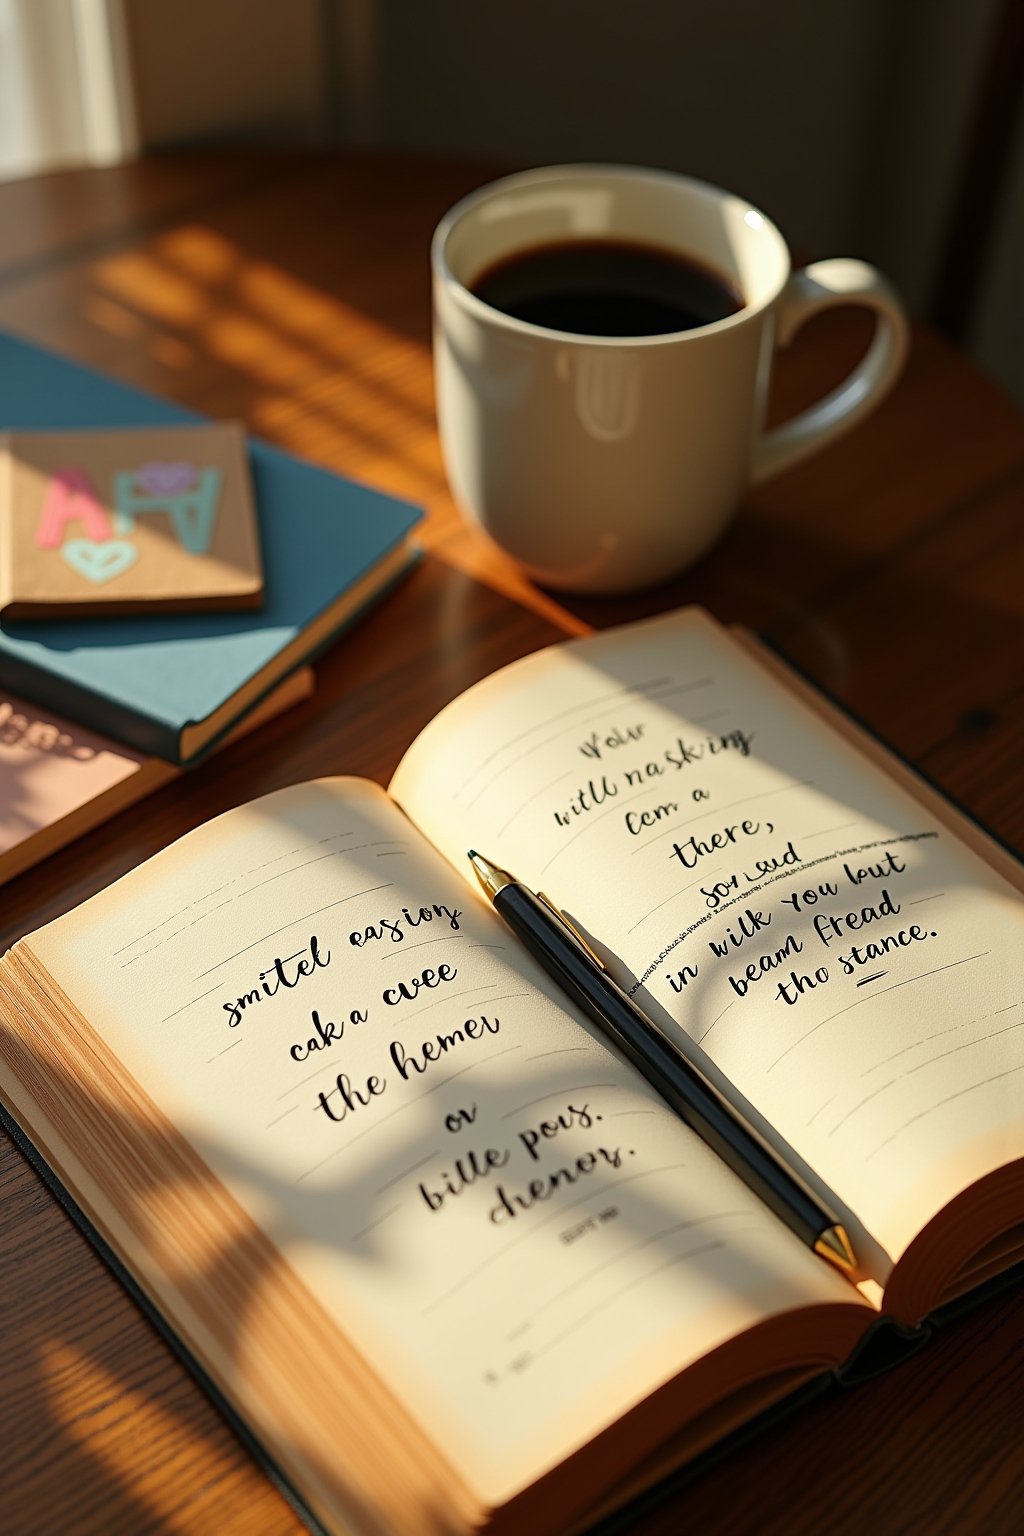 smitel easiony
cak a cvee
the hemer
or
bille pous.
chenoy.
will nasking
a
there,
in wilk you but
beam Fread
tho stance.